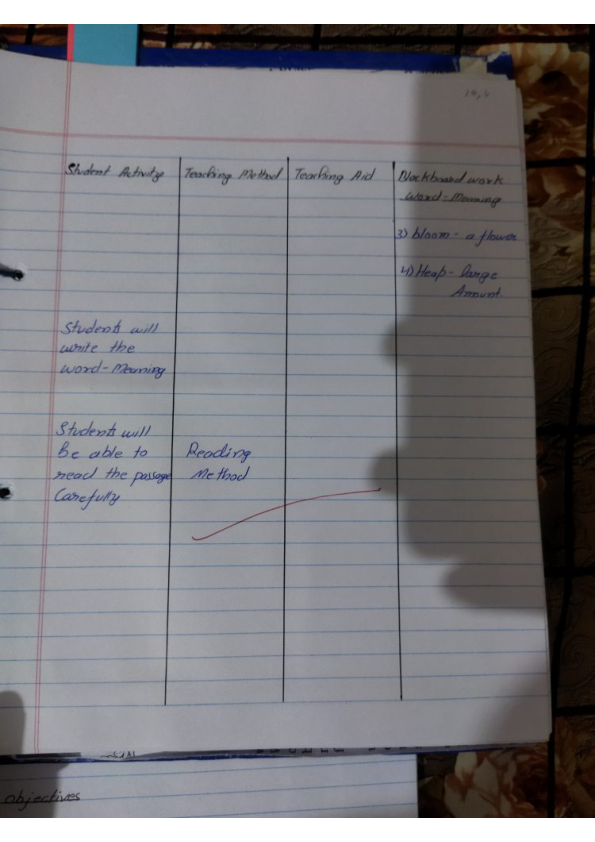 Student Activity Teaching Method Teaching Aid Blackboard work
Word-Meaning
3) bloom - a flower
4) Heap - Large
Amount
Students will
write the
word-Meaning
Students will
Be able to
read the passage
Carefully
Reading
Method
objectives